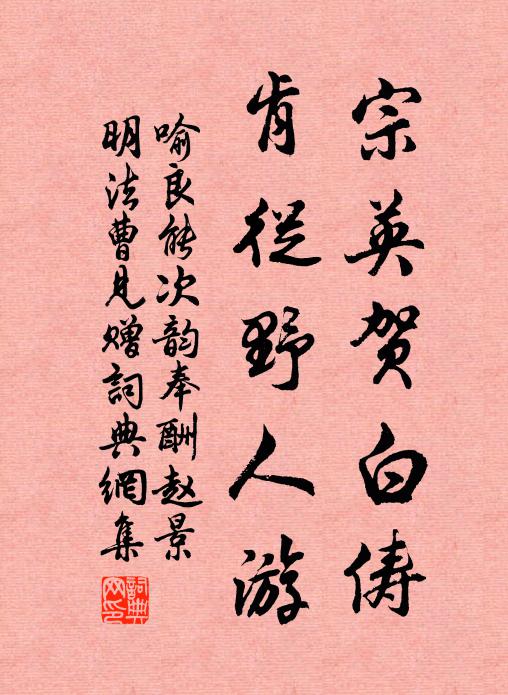 宗英贺白俦
肯從野人游
喻良能次韵奉酬赵景
明法曹見赠詞典網集